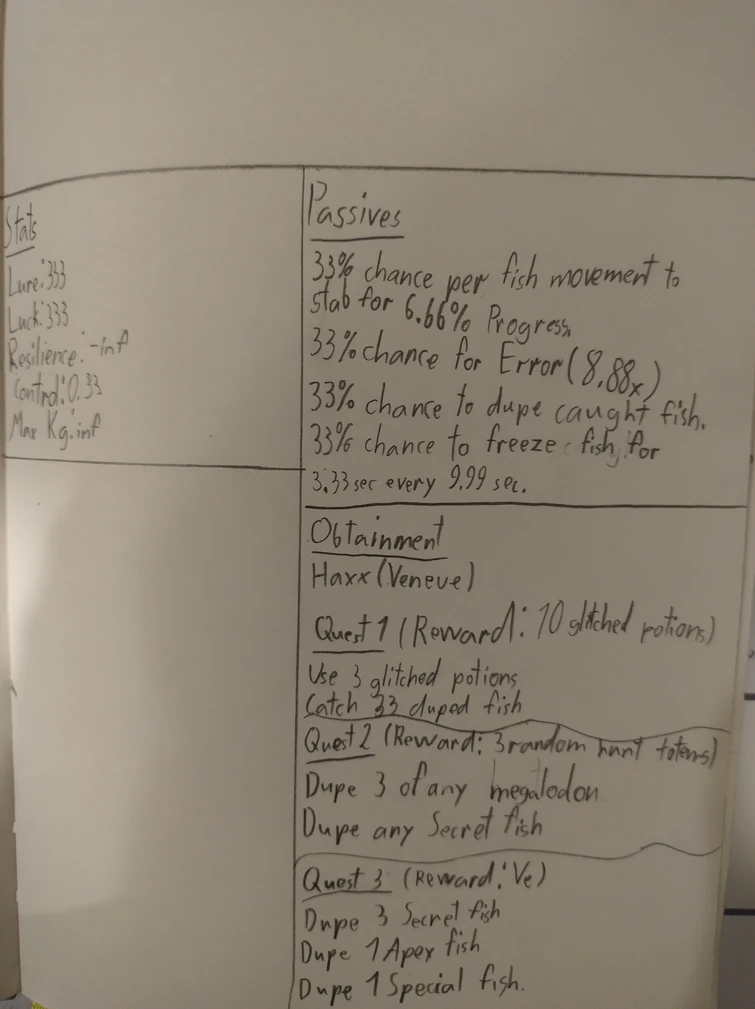 Stats
Lure: 333
Luck: 333
Resilience: -inf
Control: 0.33
Max Kg: inf
Passives
33% chance per fish movement to
stab for 6.66% Progress.
33% chance for Error (8.88x)
33% chance to dupe caught fish.
33% chance to freeze fish for
3.33 sec every 9.99 sec.
Obtainment
Haxx (Veneve)
Quest 1 (Reward: 10 glitched potions)
Use 3 glitched potions
Catch 33 duped fish
Quest 2 (Reward: 3 random hunt totems)
Dupe 3 of any megalodon
Dupe any Secret fish
Quest 3 (Reward: Ve)
Dupe 3 Secret fish
Dupe 1 Apex fish
Dupe 1 Special fish.